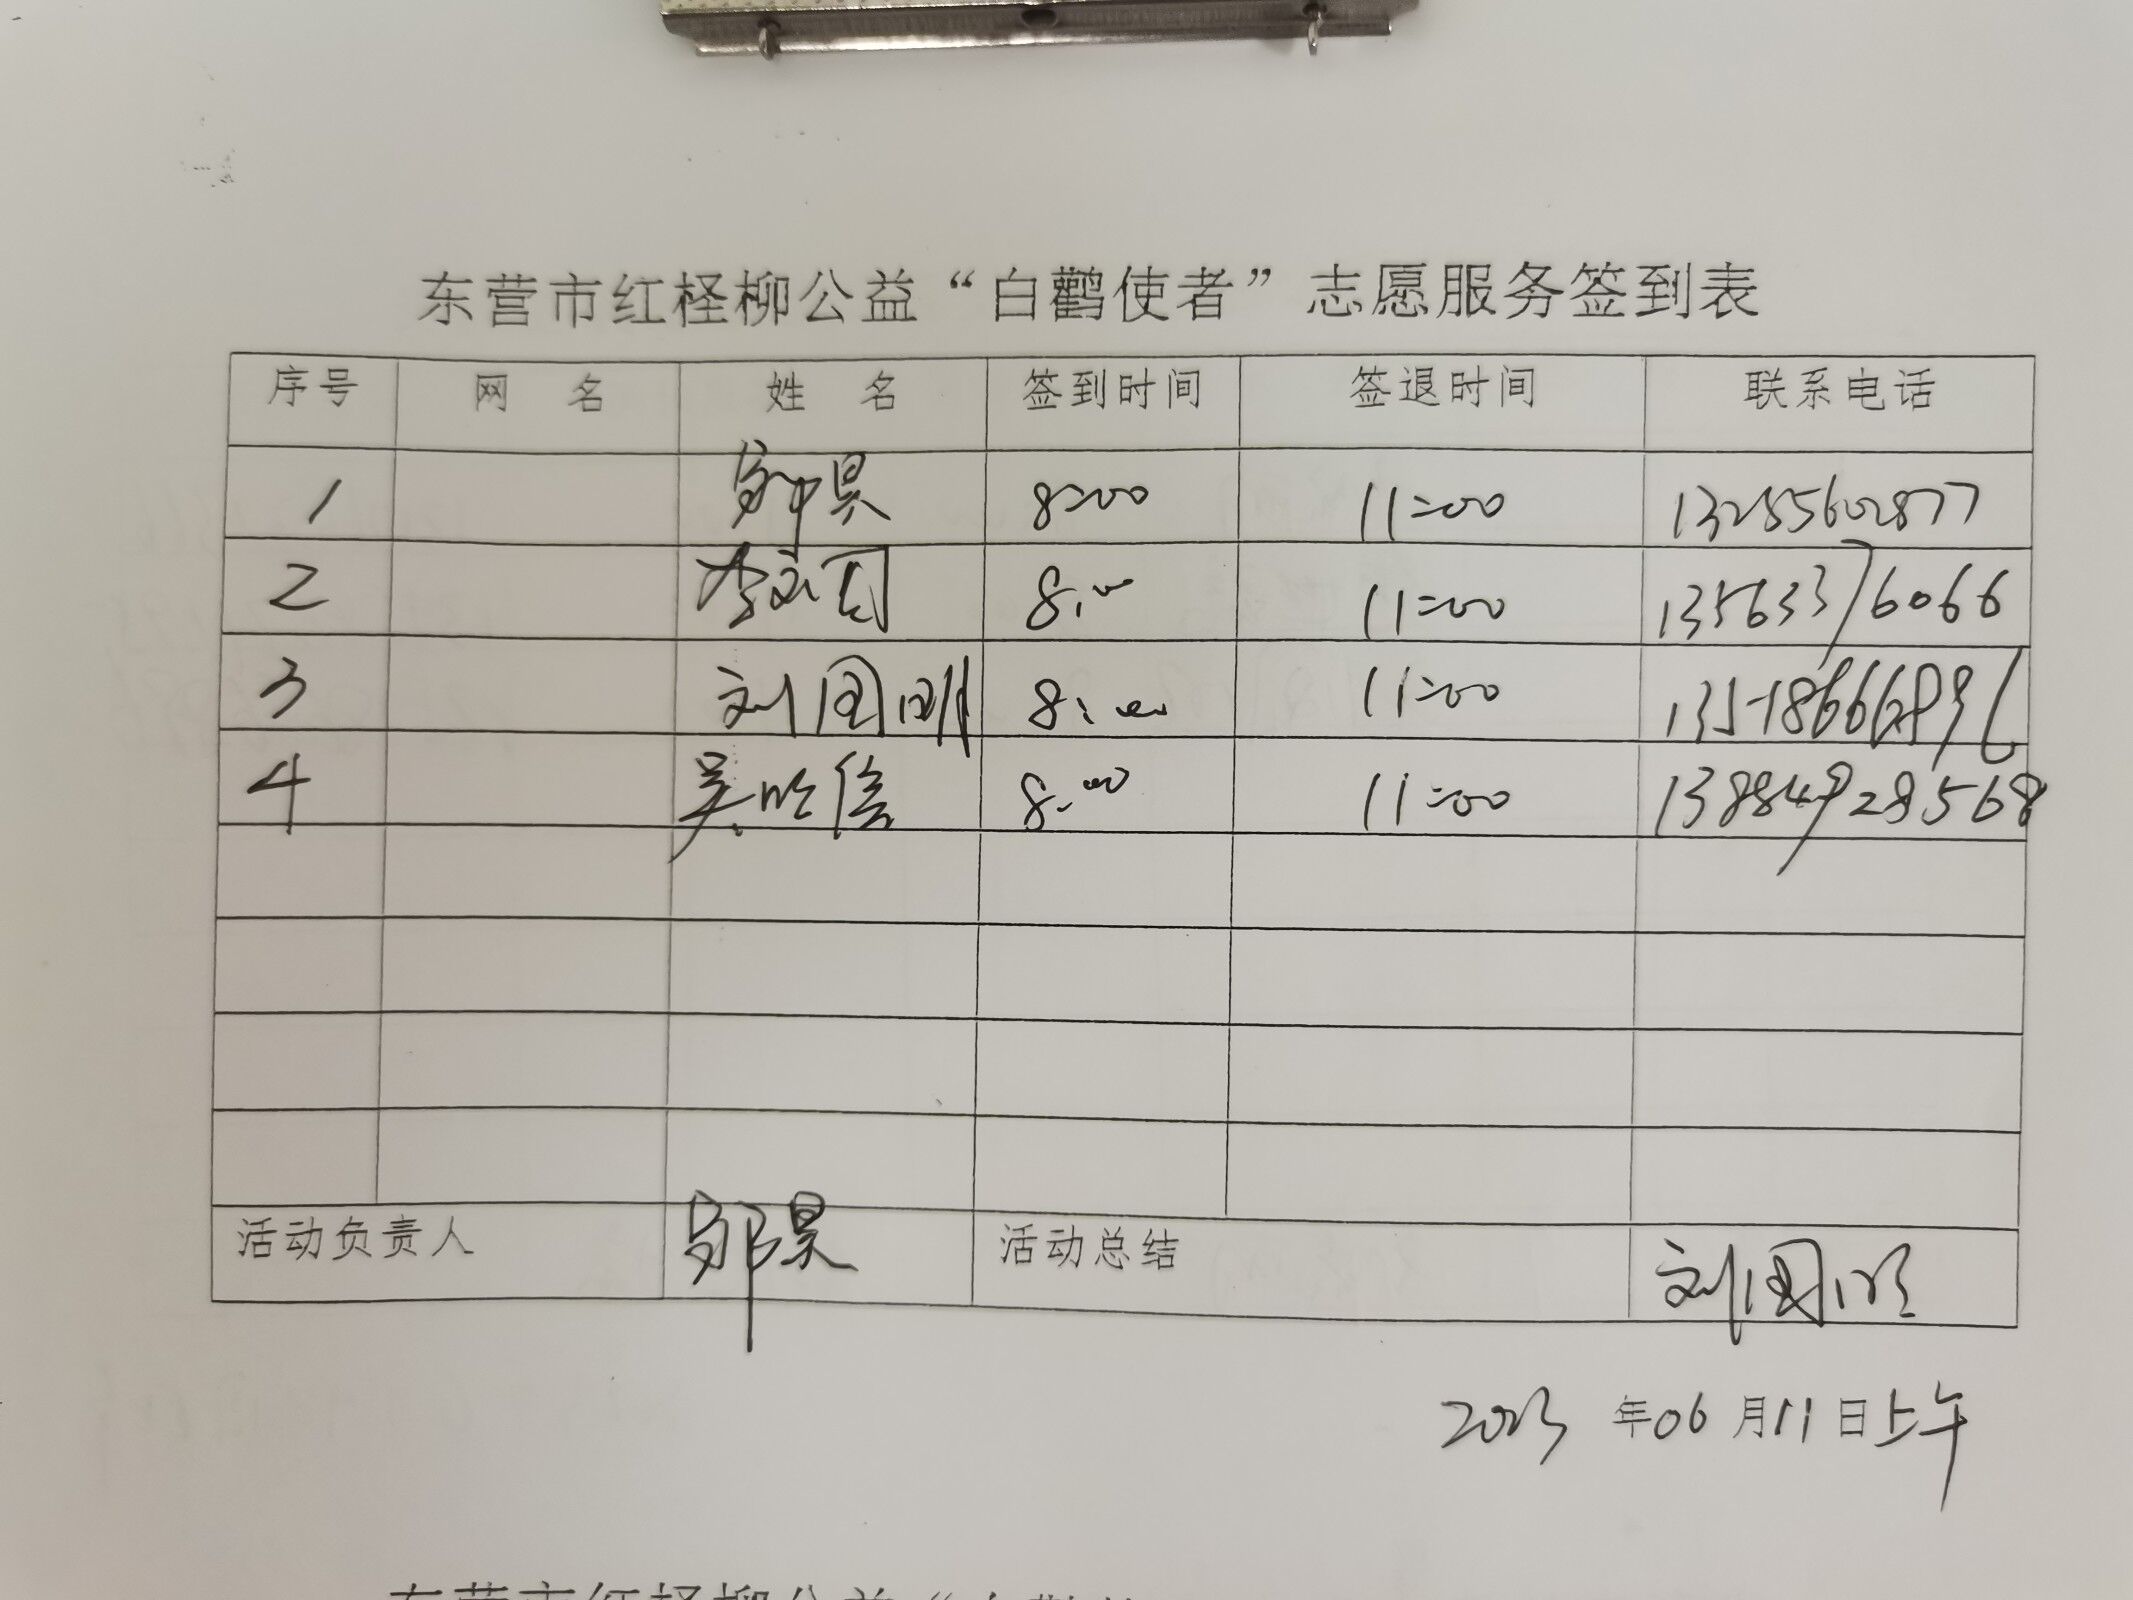 东营市红柽柳公益“白鹳使者”志愿服务签到表
序号 网 名 姓 名 签到时间 签退时间 联系电话
1 邹昊 8:00 11:00 13255602877
2 李 8:00 11:00 13563376066
3 刘国明 8:00 11:00
4 吴 8:00 11:00 13884928568
活动负责人 邹昊 活动总结 刘国明
2023 年 06 月 11 日上午
东营市红柽柳公益“白鹳使